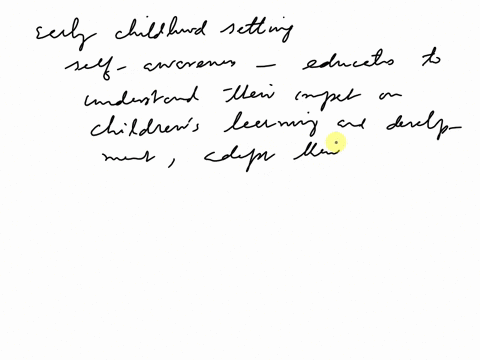 Early childhood setting
self-awareness - educators to
understand their impact on
children's learning and develop-
ment, adapt their